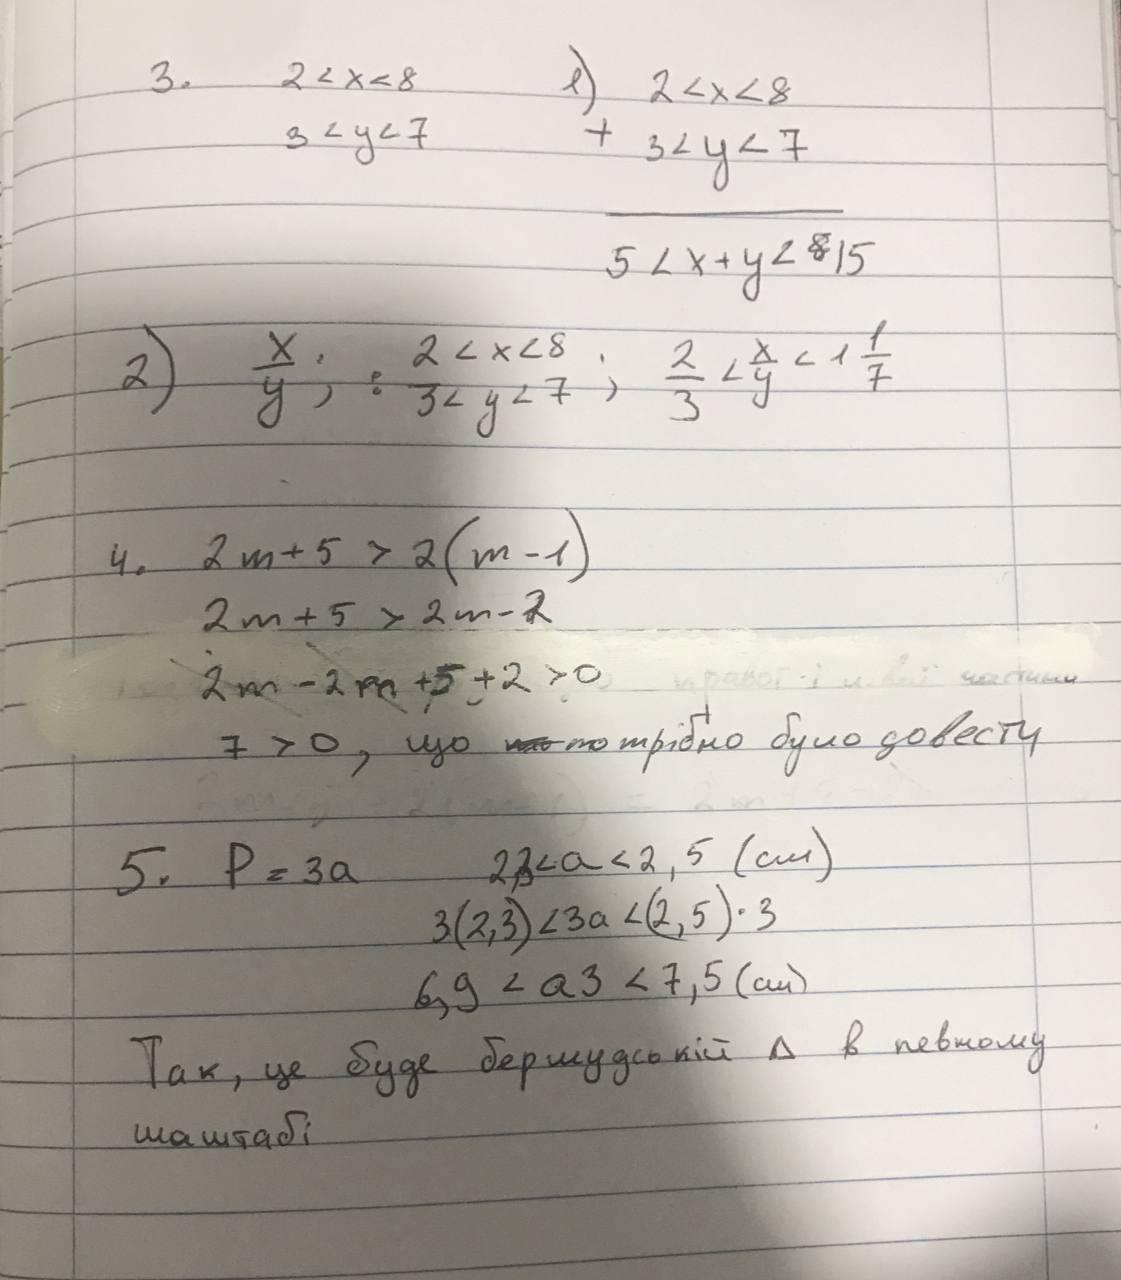 3. 2 < x < 8
3 < y < 7
1) 2 < x < 8
+ 3 < y < 7
5 < x + y < 8 15
2) x/y ; : 2 < x < 8 / 3 < y < 7 ; 2/3 < x/y < 1 1/7
4. 2m + 5 > 2(m - 1)
2m + 5 > 2m - 2
2m - 2m + 5 + 2 > 0
7 > 0, що потрібно було довести
5. P = 3a 2,3 < a < 2,5 (см)
3(2,3) < 3a < (2,5) · 3
6,9 < a3 < 7,5 (см)
Так, це буде бермудській Δ в певному
маштабі